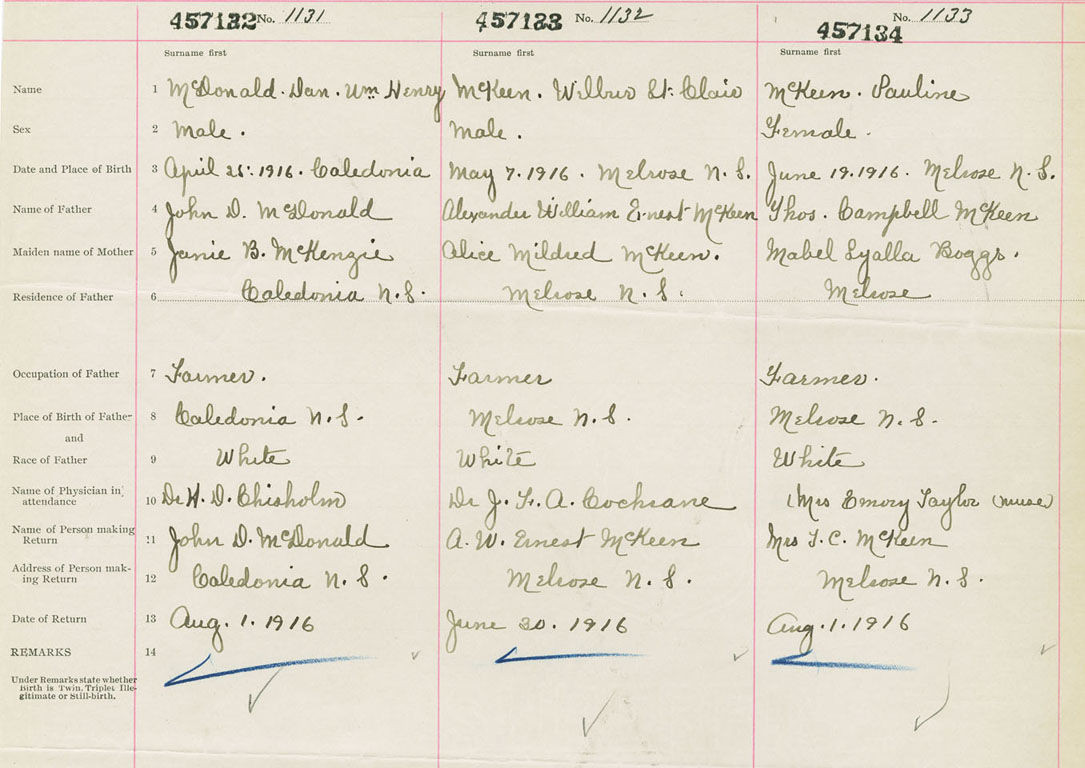 457132 No. 1131 457133 No. 1132 457134 No. 1133
Surname first Surname first Surname first
Name 1 McDonald. Dan. Wm Henry McKeen. Wilbur St. Clair McKeen. Pauline
Sex 2 Male. Male. Female.
Date and Place of Birth 3 April 25. 1916. Caledonia May 7. 1916. Melrose N. S. June 19. 1916. Melrose N. S.
Name of Father 4 John D. McDonald Alexander William Ernest McKeen Thos. Campbell McKeen
Maiden name of Mother 5 Janie B. McKenzie Alice Mildred McKeen. Mabel Lyalla Boggs.
Residence of Father 6 Caledonia N. S. Melrose N. S. Melrose
Occupation of Father 7 Farmer. Farmer Farmer.
Place of Birth of Father 8 Caledonia N. S. Melrose N. S. Melrose N. S.
and
Race of Father 9 White White White
Name of Physician in attendance 10 Dr H. D. Chisholm Dr J. F. A. Cochrane (Mrs Emory Taylor (nurse)
Name of Person making Return 11 John D. McDonald A. W. Ernest McKeen Mrs T. C. McKeen
Address of Person mak-
ing Return 12 Caledonia N. S. Melrose N. S. Melrose N. S.
Date of Return 13 Aug. 1. 1916 June 30. 1916 Aug. 1. 1916
REMARKS 14
Under Remarks state whether
Birth is Twin, Triplet Ille-
gitimate or Still-birth.